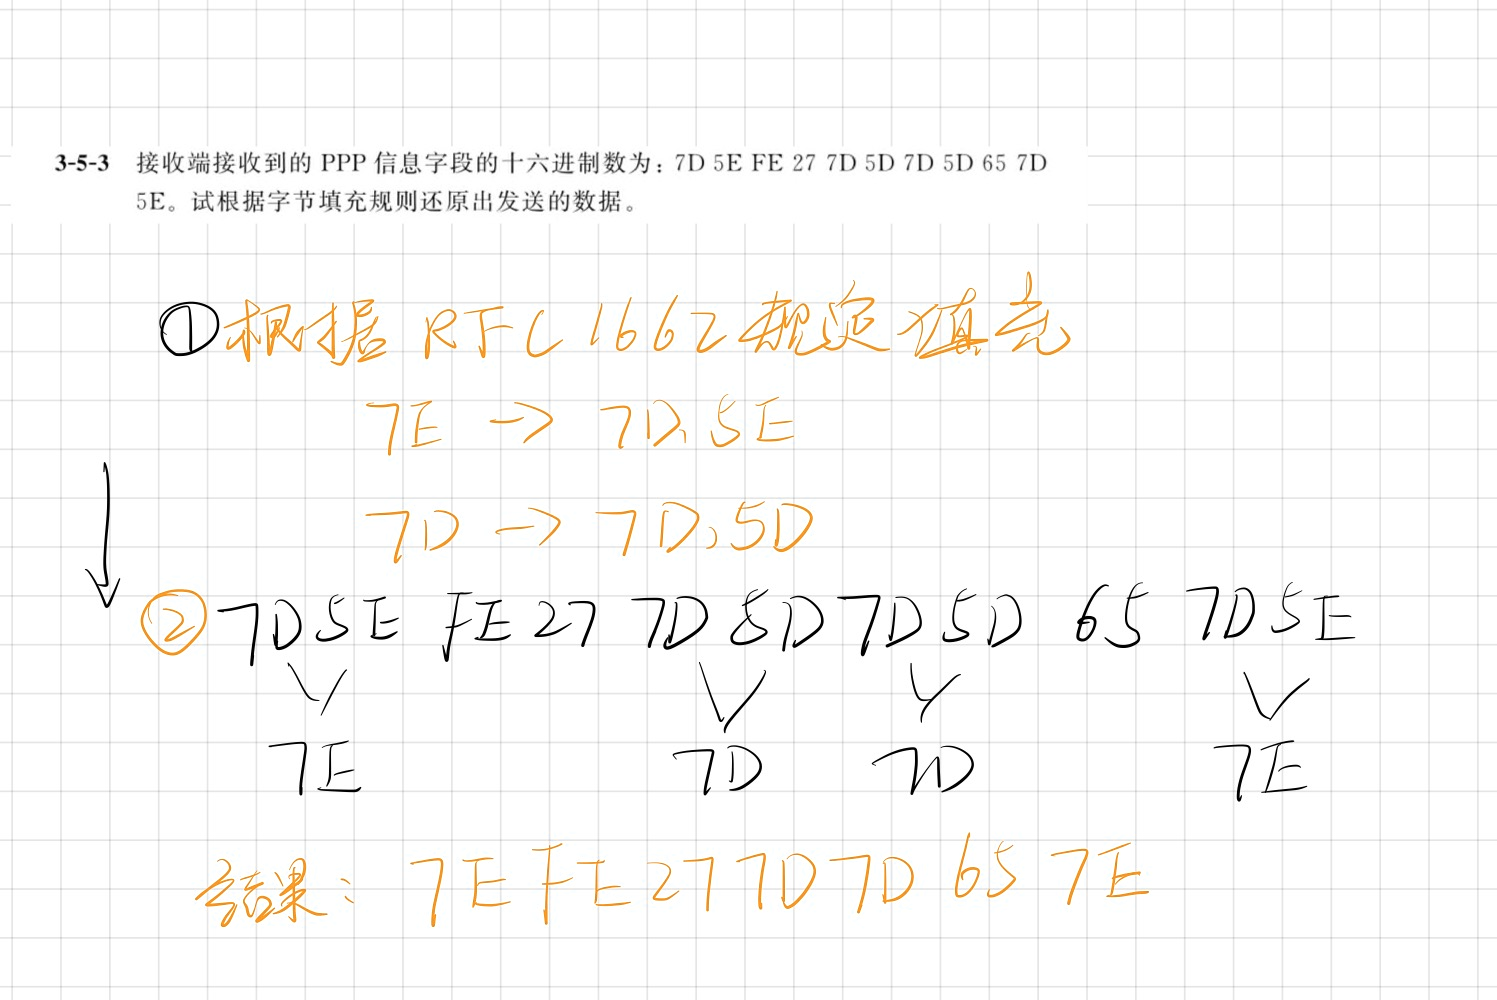 3-5-3 接收端接收到的 PPP 信息字段的十六进制数为：7D 5E FE 27 7D 5D 7D 5D 65 7D
5E。试根据字节填充规则还原出发送的数据。
①根据 RFC 1662 规定填充
7E → 7D、5E
7D → 7D、5D
② 7D 5E FE 27 7D 5D 7D 5D 65 7D 5E
7E 7D 7D 7E
结果：7E FE 27 7D 7D 65 7E